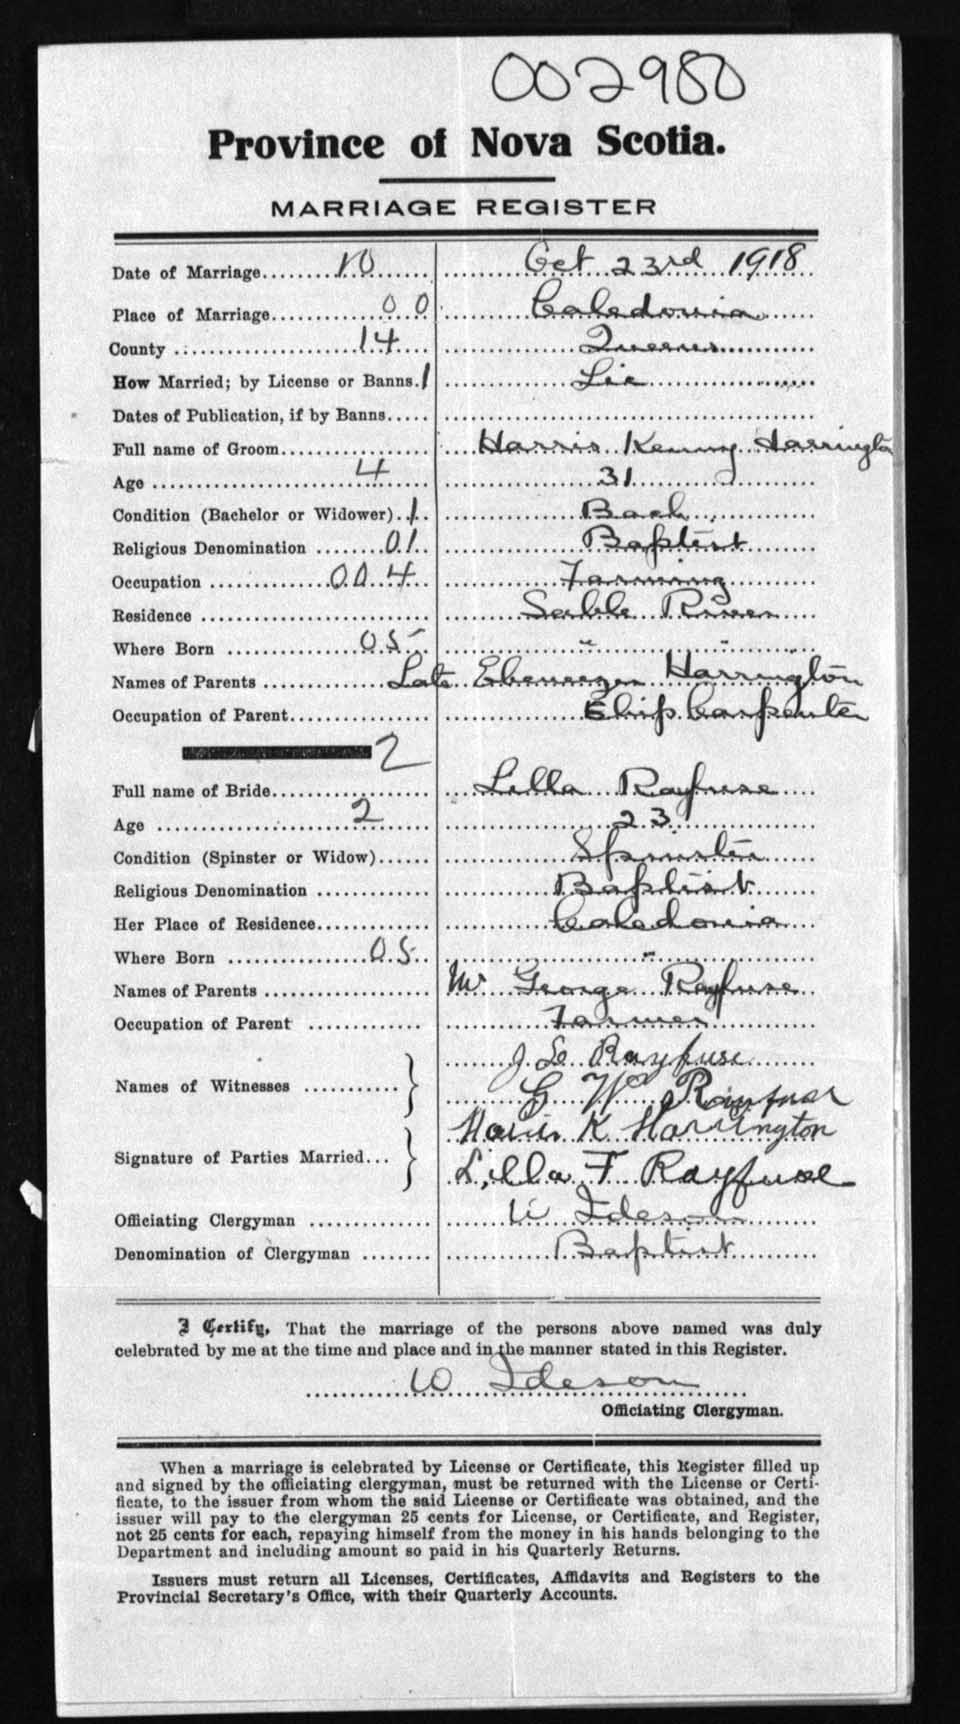 002980
Province of Nova Scotia.
MARRIAGE REGISTER
Date of Marriage........10...... Oct 23rd 1918
Place of Marriage............0 0 Caledonia
County ....................14.... Queens
How Married; by License or Banns.1 Lic
Dates of Publication, if by Banns.....
Full name of Groom................ Harris Kenny Harrington
Age ......................4...... 31
Condition (Bachelor or Widower)..1.. Bach
Religious Denomination .......01.. Baptist
Occupation .............004.. Farming
Residence ........................ Sable River
Where Born ..............05.... " "
Names of Parents ............. Late Ebeneezer Harrington
Occupation of Parent.............. Ship Carpenter
2
Full name of Bride................ Lilla Rayfuse
Age ......................2...... 23
Condition (Spinster or Widow)...... Spinster
Religious Denomination ............ Baptist
Her Place of Residence............. Caledonia
Where Born ................05.. "
Names of Parents .................. Mr George Rayfuse
Occupation of Parent ............. Farmer
J L Rayfuse
Names of Witnesses ........... } G W Rayfuse
Harris K Harrington
Signature of Parties Married... } Lilla F Rayfuse
Officiating Clergyman ............. W Ideson
Denomination of Clergyman ........ Baptist
I Certify, That the marriage of the persons above named was duly
celebrated by me at the time and place and in the manner stated in this Register.
W Ideson
Officiating Clergyman.
When a marriage is celebrated by License or Certificate, this Register filled up
and signed by the officiating clergyman, must be returned with the License or Certi-
ficate, to the issuer from whom the said License or Certificate was obtained, and the
issuer will pay to the clergyman 25 cents for License, or Certificate, and Register,
not 25 cents for each, repaying himself from the money in his hands belonging to the
Department and including amount so paid in his Quarterly Returns.
Issuers must return all Licenses, Certificates, Affidavits and Registers to the
Provincial Secretary's Office, with their Quarterly Accounts.